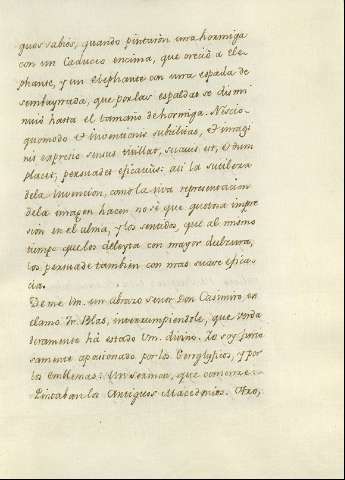 guos sabios, quando pintaron una hormiga
con un Caduceo encima, que creció a Ele-
phante, y un Elephante con una espada de
sembaynada, que por las espaldas se dismi
nuió hasta el tamaño de hormiga. Nescio
quomodo et inventionis subtilitas, et imagi
nis expresio sensus titillat, suavius est, et dum
placet, persuadet eficacius: asi la sutileza
dela invencion, como la viva representacion
dela imagen hacen no sè que gustosa impre
sion en el alma, y los sentidos, que al mismo
tiempo que los deleyta con mayor dulzura,
los persuade tambien con mas suave efica-
cia.
Deme Vm. un abrazo señor Don Casimiro, ex
clamó Fr. Blas, interrumpiendole, que verda
deramente há estado Vm. divino. Yo soy furio
samente apasionado por los Geroglyficos, y por
los Emblemas: Un sermon, que comienze-
Pintaban los Antiguos Macedonios. Otro,